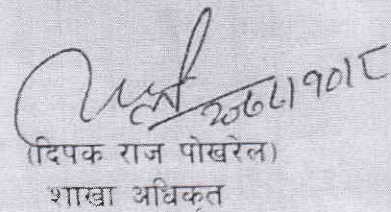 २०७८।१०।८
(दिपक राज पोखरेल)
शाखा अधिकृत